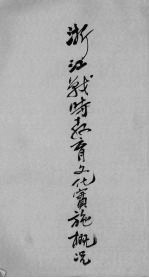 浙江戰時教育文化實施概況